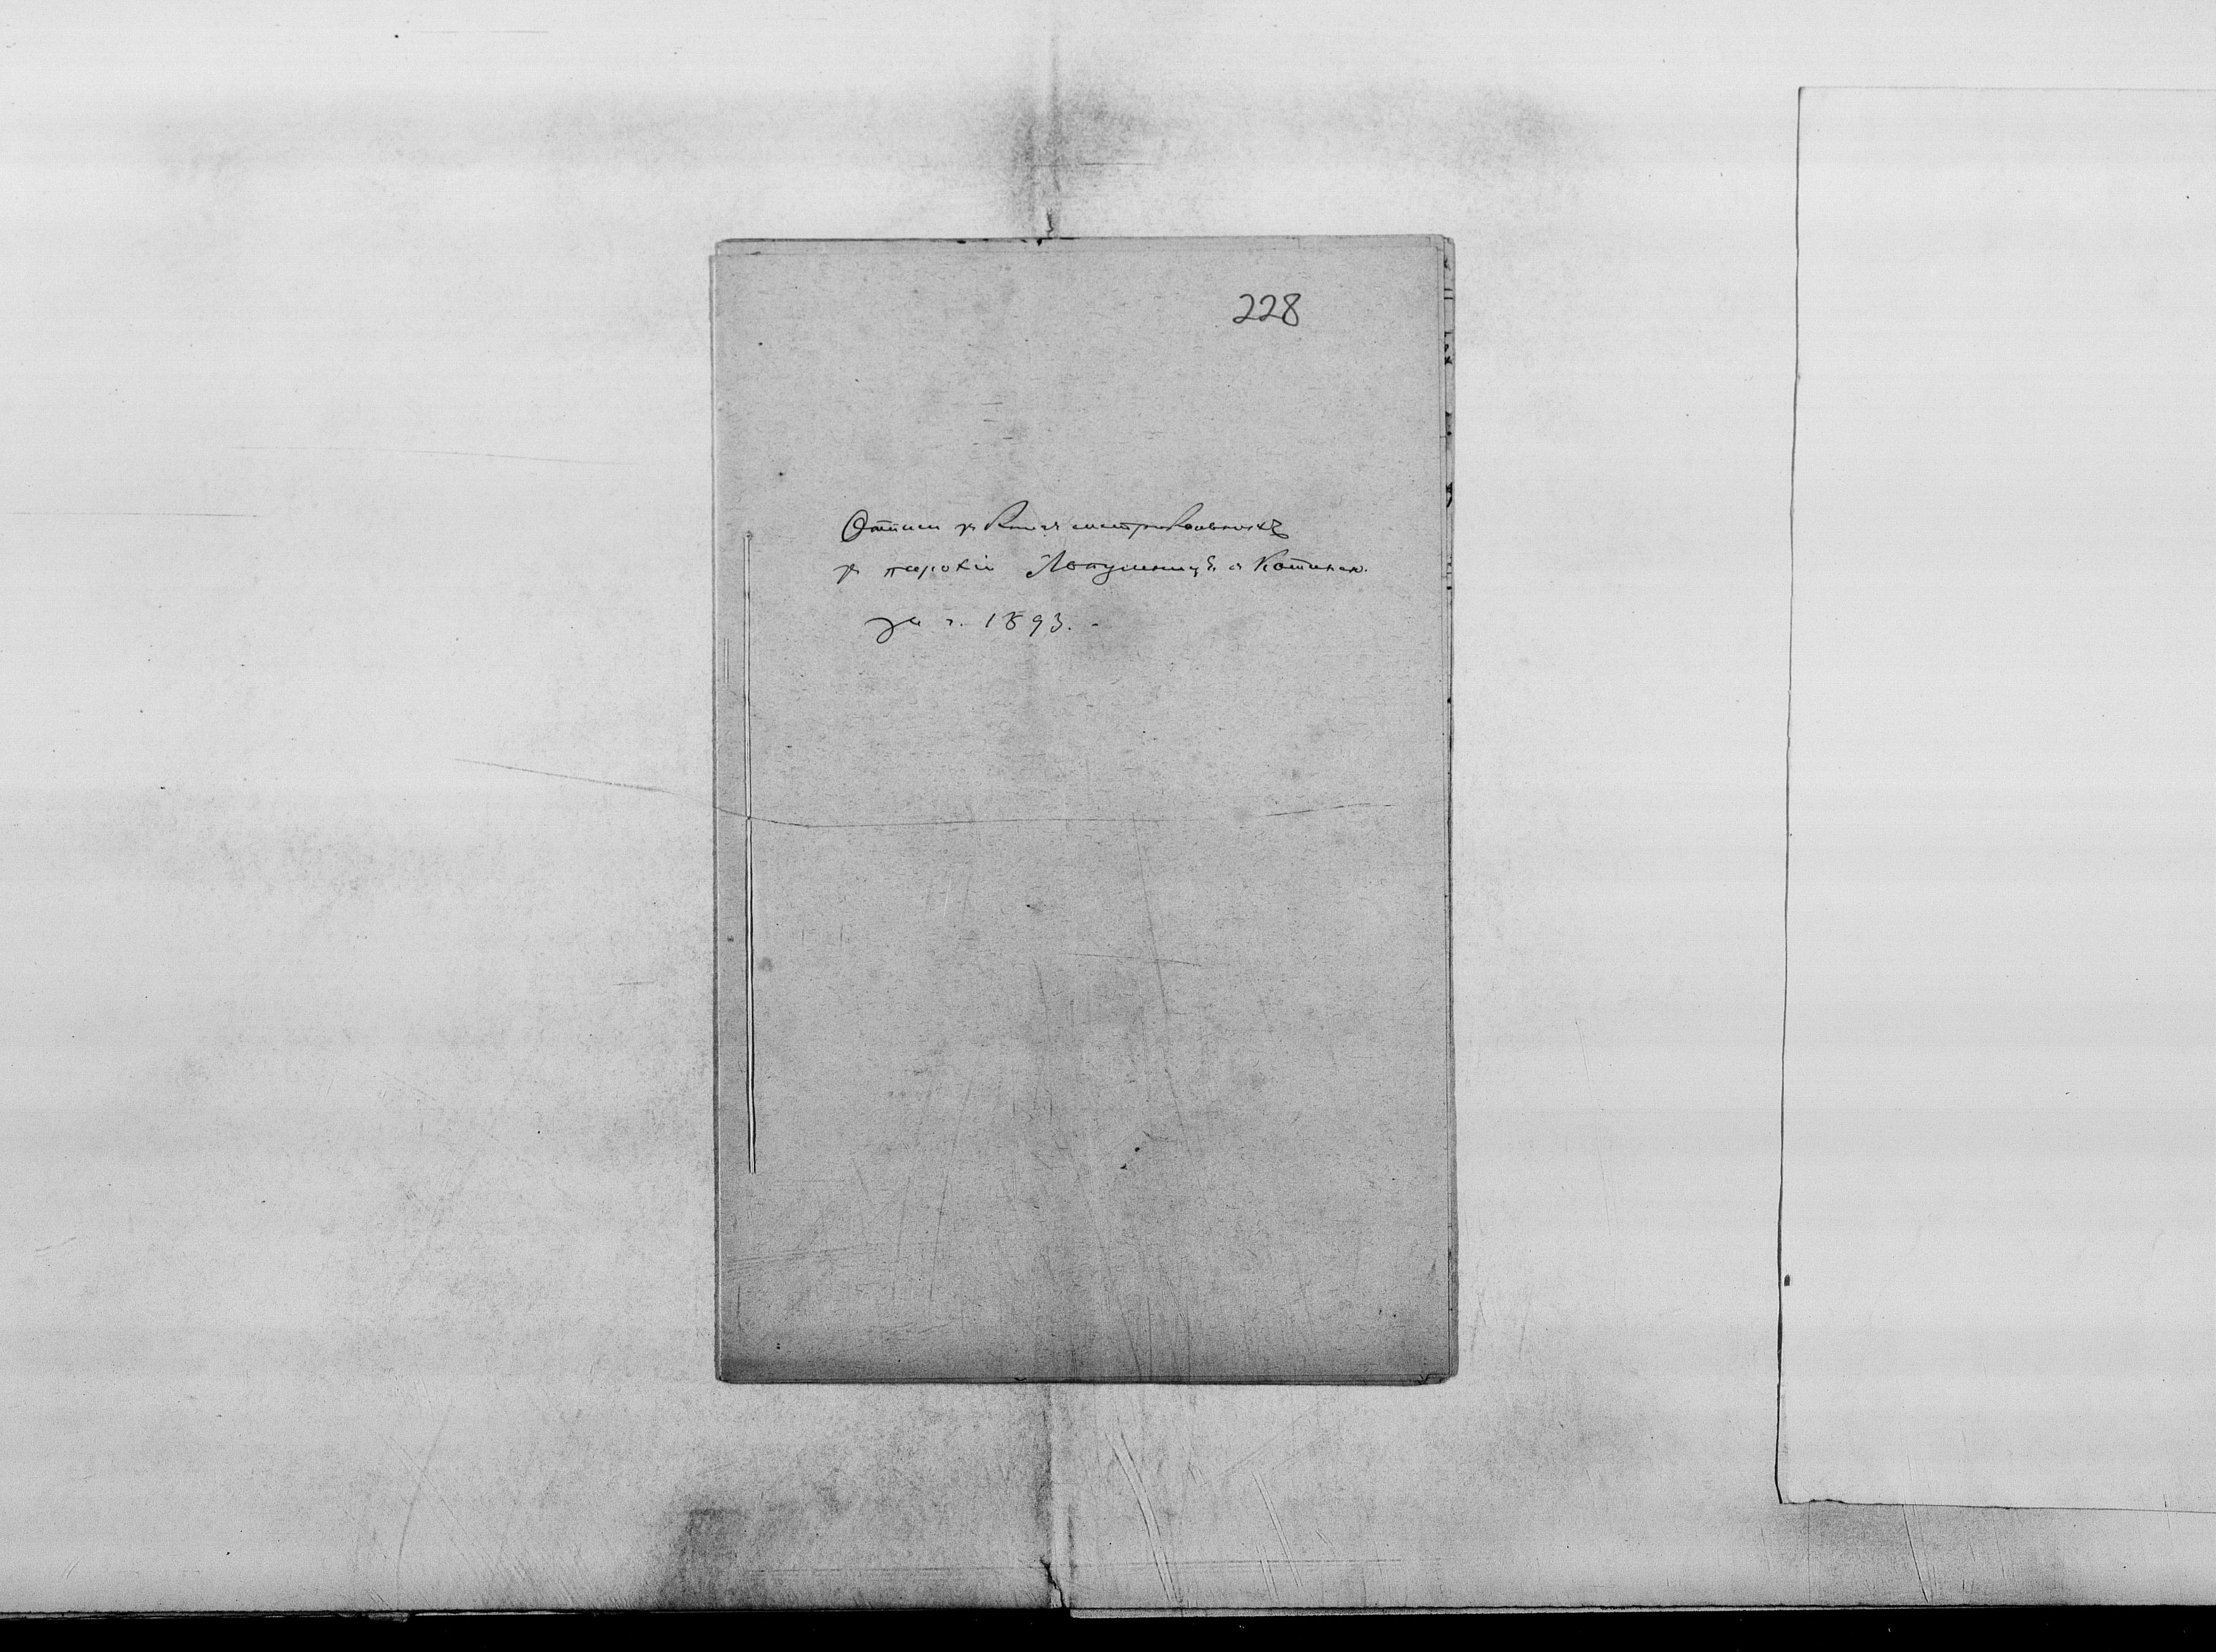 228
Отписи зъ Книгъ метрикальныхъ
зъ парохіи Лопушниця а Котиван.
за г. 1893.-